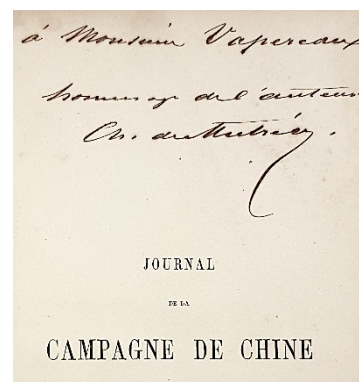 à Monsieur Vapereaux
hommage de l'auteur
Ch. de Mutrécy.
JOURNAL
DE LA
CAMPAGNE DE CHINE